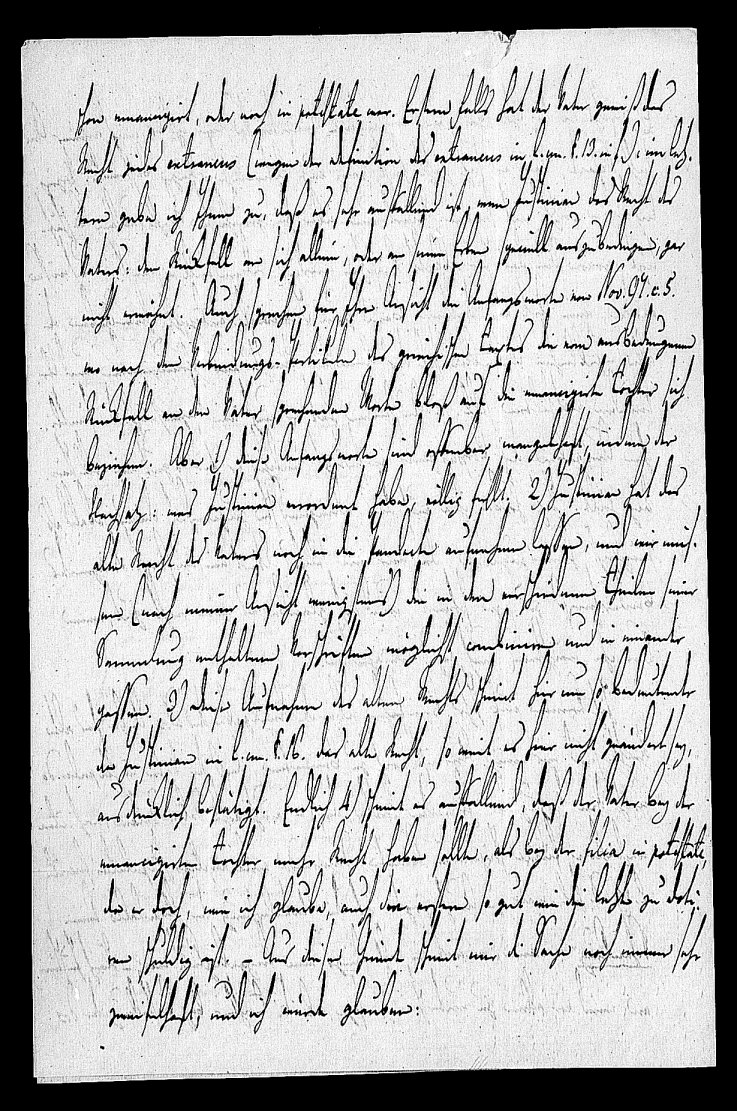 schon emancipirt, oder noch in potestate war. Erstern Falls hat der Vater gewiß das
Recht jedes extraneus (wegen der Definition des extraneus in l. un. §. 13. in f.); im letz-
tern gebe ich Ihnen zu, daß es sehr auffallend ist, wenn Justinian des Recht des
Vaters: den Rückfall an sich allein, oder an seine Erben speciell auszubedingen, gar
nicht erwähnt. Auch sprechen für Ihre Ansicht die Anfangsworte von Nov. 97. c. 5.
wo nach den Verbindungs-Partikeln des griechischen Textes die vom ausbedungenen
Rückfall an den Vater sprechenden Worte bloß auf die emancipirte Tochter sich
beziehen. Aber 1) diese Anfangsworte sind offenbar mangelhaft, indem der
Nachsatz: was Justinian verordnet habe, völlig fehlt. 2) Justinian hat das
alte Recht des Vaters noch in die Pandecte aufnehmen lassen, und wir müs-
sen (nach meiner Ansicht wenigstens) die in den verschiedenen Theilen seiner
Sammlung enthaltenen Vorschriften möglichst combiniren und in einander
passen. 3) Diese Aufnahme des alten Rechts scheint hier um so bedeutender
da Justinian in l. un. §. 16. das alte Recht, so weit es hier nicht geändert sey,
ausdrücklich bestätigt. Endlich 4) scheint es auffallend, daß der Vater bey der
emancipirten Tochter mehr Recht haben sollte, als bey der filia in potestate,
da er doch, wie ich glaube, auch die erstere so gut wie die letzte zu doti-
ren schuldig ist. – Aus diesen Gründen scheint mir die Sache noch immer sehr
zweifelhaft, und ich würde glauben: